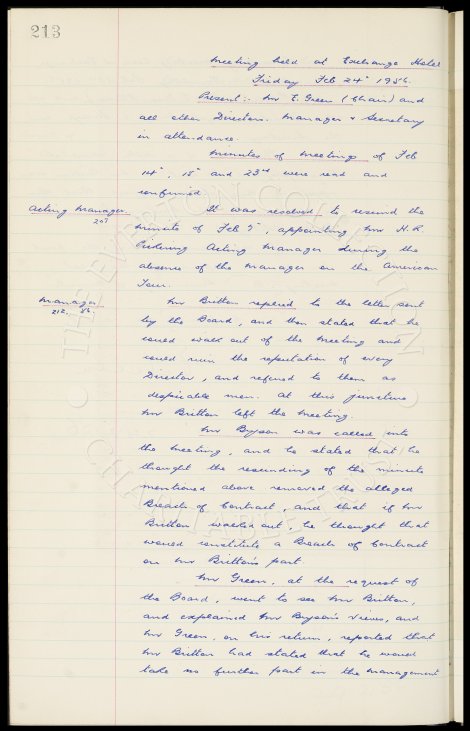 213
Meeting held at Exchange Hotel
Friday Feb 24th 1956.
Present:- Mr E. Green (Chair) and
all other Directors. Manager & Secretary
in attendance.
Minutes of Meetings of Feb
14th, 15th and 23rd were read and
confirmed.
Acting Manager
207
It was resolved to rescind the
minute of Feb 7th, appointing Mr H. R.
Pickering Acting Manager during the
absence of the Manager on the American
Tour.
Manager
212.
Mr Britton replied to the letter sent
by the Board, and then stated that he
would walk out of the Meeting and
would ruin the reputation of every
Director, and referred to them as
despicable men. At this juncture
Mr Britton left the Meeting.
Mr Bryson was called into
the Meeting, and he stated that he
thought the rescinding of the minute
mentioned above removed the alleged
Breach of Contract, and that if Mr
Britton walked out, he thought that
would constitute a Breach of Contract
on Mr Britton's part.
Mr Green, at the request of
the Board, went to see Mr Britton,
and explained Mr Bryson's views, and
Mr Green, on his return, reported that
Mr Britton had stated that he would
take no further part in the management
THE EVERTON COLLECTION
CHARITABLE TRUST